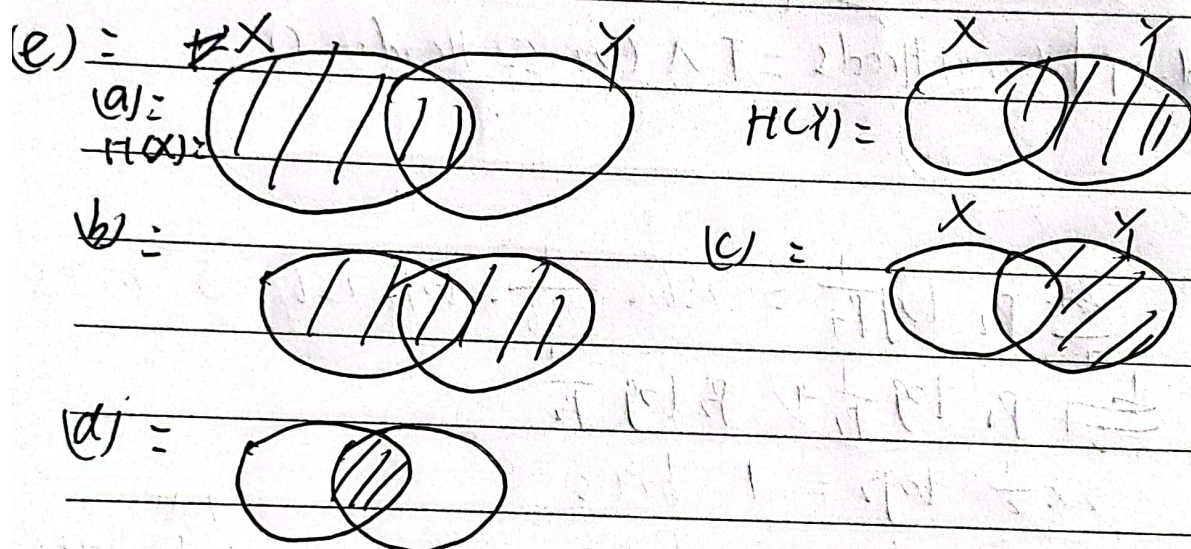 (e) = X Y
(a) =
H(X) =
X Y
H(Y) =
(b) =
X Y
(c) =
(d) =